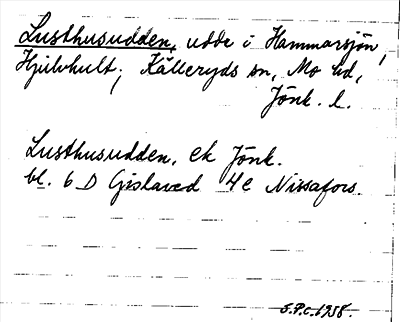 Lusthusudden, udde i Hammarsjön,
Hjulvhult; Källeryds sn, Mo hd,
Jönk. l.
Lusthusudden, ek Jönk.
bl. 6 D Gislaved 4e Nissafors.
S.P.C. 1958.